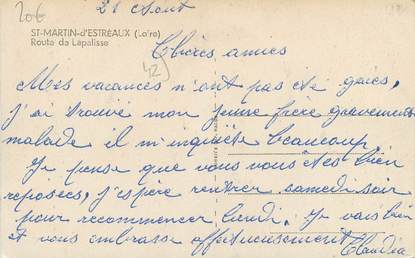 20€
21 Aout
ST-MARTIN-d'ESTRÉAUX (Loire)
Route de Lapalisse
Chères amies
42
Mes vacances n'ont pas été gaies,
j'ai trouvé mon jeune frère gravement
malade il m'inquiète beaucoup.
Je pense que vous vous êtes bien
reposées, j'espère rentrer samedi soir
pour recommencer lundi. Je vais bien
et vous embrasse affectueusement Claudia